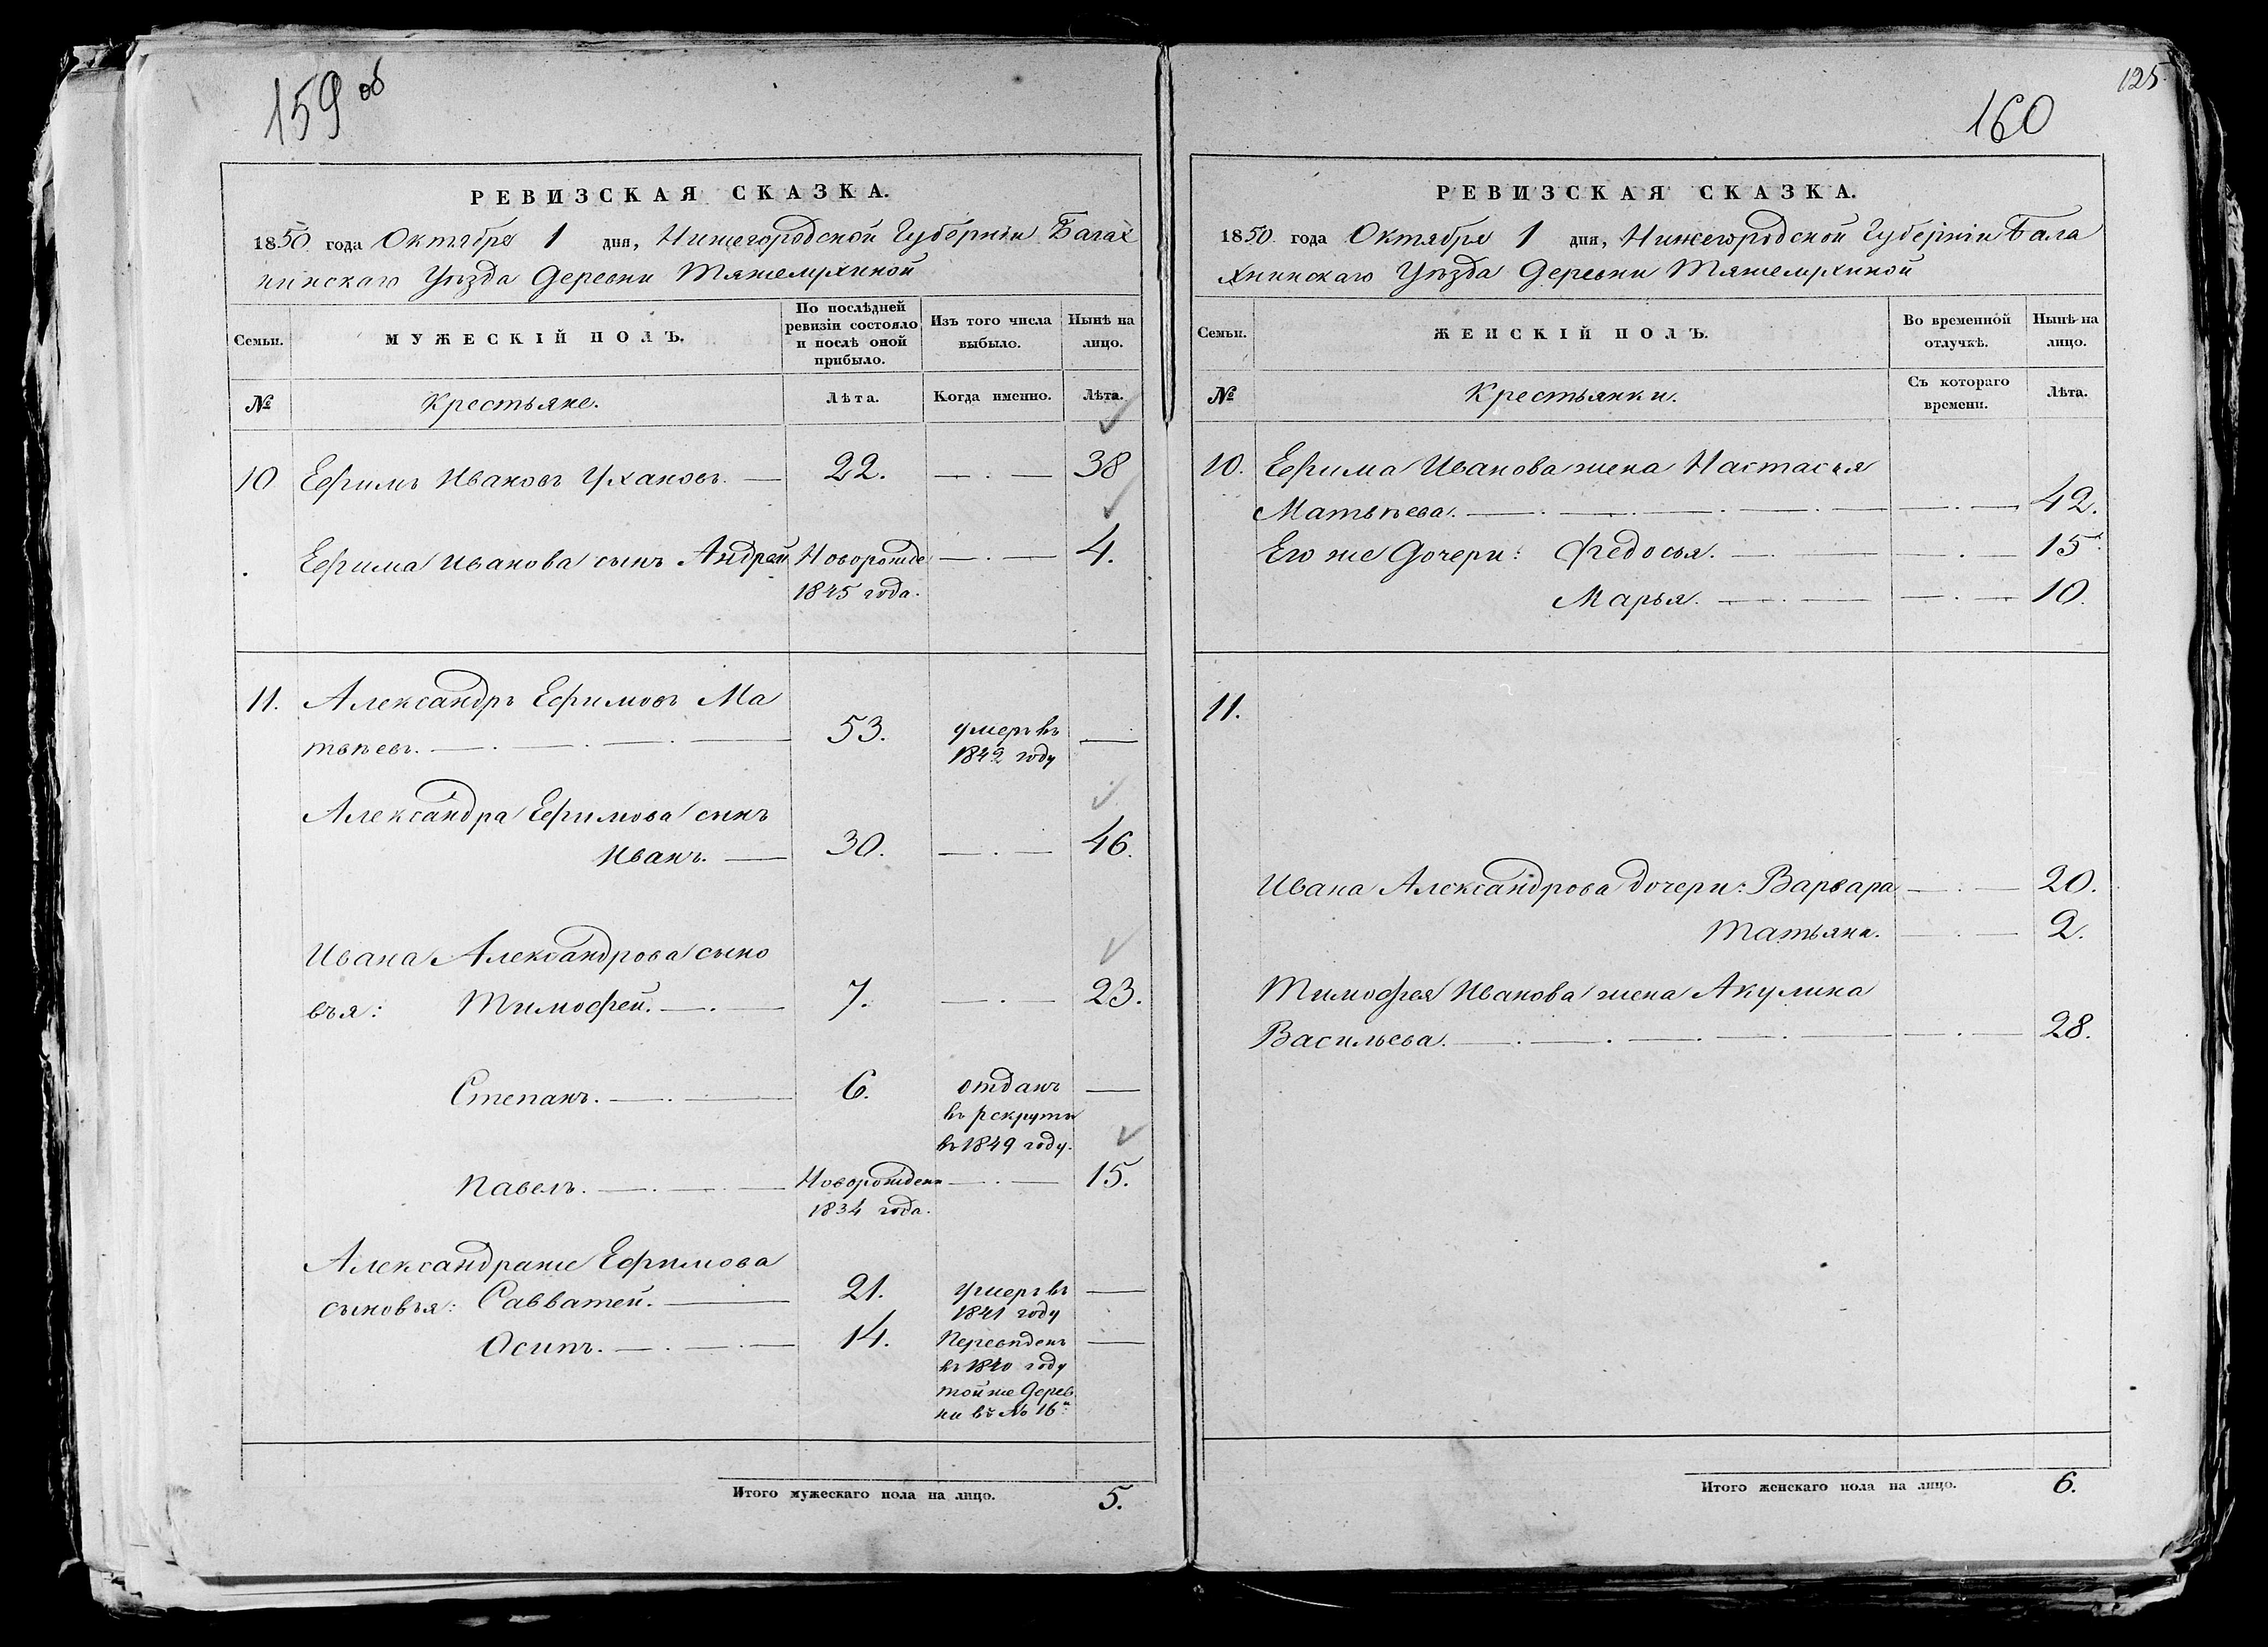 159 об
РЕВИЗСКАЯ СКАЗКА.
1850 года Октября 1 дня, Нижегородской Губерніи Балах
нинскаго Уѣзда Деревни Тяжемухиной
Семьи.
МУЖЕСКІЙ ПОЛЪ.
По послѣдней ревизіи состояло и послѣ оной прибыло.
Изъ того числа выбыло.
Нынѣ на лицо.
№
Крестьяне.
Лѣта.
Когда именно.
Лѣта.
10 Ефимъ Ивановъ Ухановъ. 22. 38
Ефима Иванова сынъ Андрей Новорожде 4.
1845 года.
11. Александръ Ефимовъ Ма
твѣевъ. 53. умеръ въ
1842 году
Александра Ефимова сынъ
Иванъ. 30. 46.
Ивана Александрова сыно
вья: Тимофей. 7. 23.
Степанъ. 6. отданъ
въ рекруты
въ 1849 году.
Павелъ. Новорожденъ 15.
1834 года.
Александраже Ефимова
сыновья: Савватей. 21. умеръ въ
1841 году
Осипъ. 14. Переведенъ
въ 1840 году
тойже Дерев
ни въ № 16й
Итого мужескаго пола на лицо. 5.
125
160
РЕВИЗСКАЯ СКАЗКА.
1850 года Октября 1 дня, Нижегородской Губерніи Бала
хнинскаго Уѣзда Деревни Тяжемухиной
Семьи.
ЖЕНСКІЙ ПОЛЪ.
Во временной отлучкѣ.
Нынѣ на лицо.
№
Крестьянки.
Съ котораго времени.
Лѣта.
10. Ефима Иванова жена Настасья
Матвѣева. 42.
Его же Дочери: Федосья. 15.
Марья. 10.
11.
Ивана Александрова дочери: Варвара 20.
Татьяна. 2.
Тимофея Иванова жена Акулина
Васильева. 28.
Итого женскаго пола на лицо. 6.